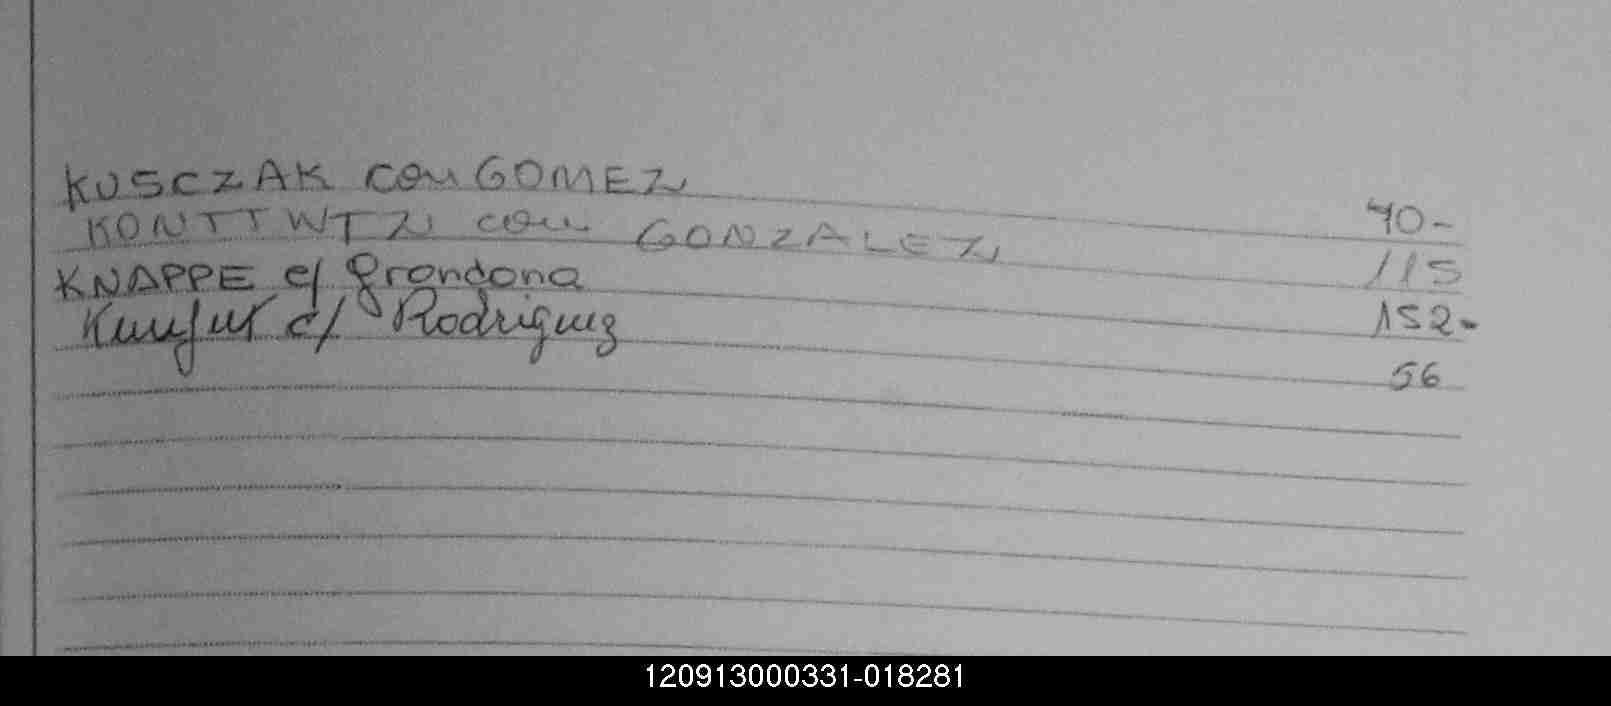 KUSCZAK con GOMEZ 40-
KONTTWTZ con GONZALEZ 115
KNAPPE c/ Grondona 152-
c/ Rodriguez 56
120913000331-018281